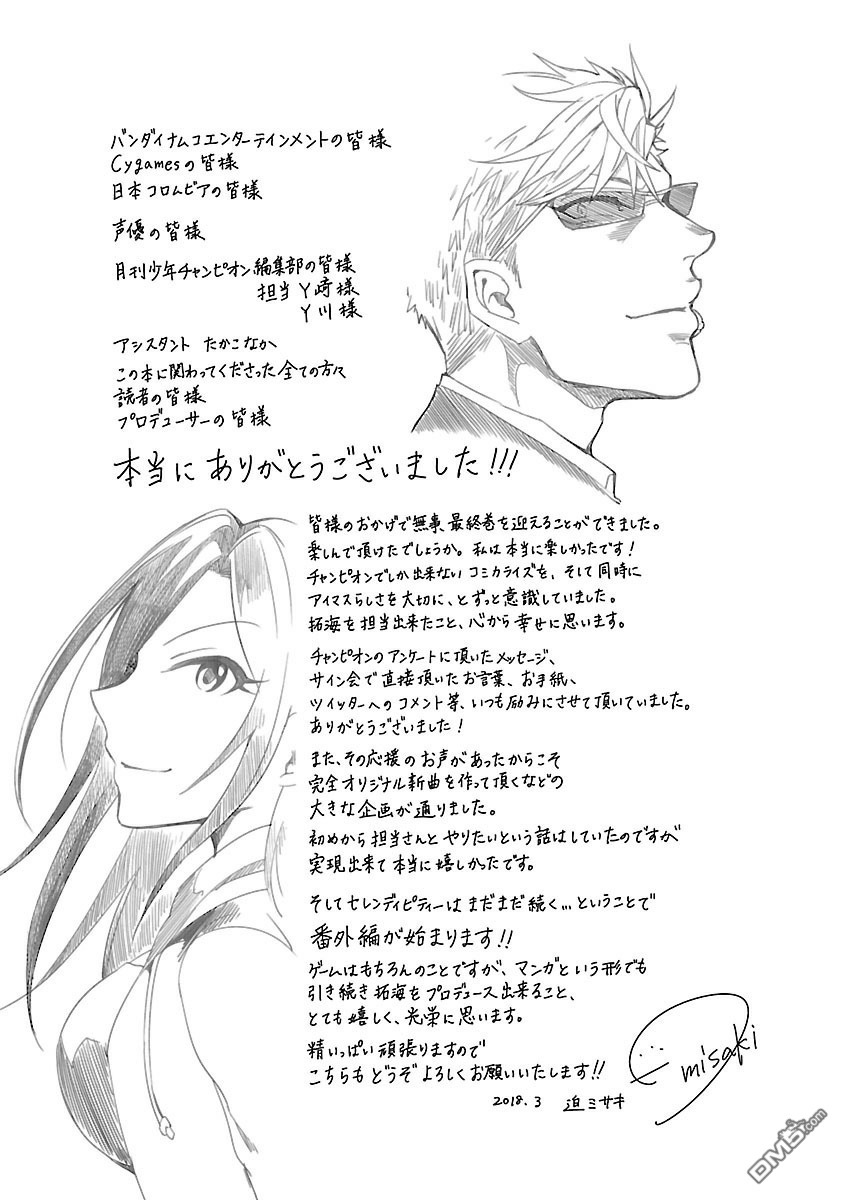 バンダイナムコエンターテインメントの皆様
Cygamesの皆様
日本コロムビアの皆様
声優の皆様
月刊少年チャンピオン編集部の皆様
担当 Y崎様
Y川様
アシスタント たかこなか
この本に関わってくださった全ての方々
読者の皆様
プロデューサーの皆様
本当にありがとうございました!!!
皆様のおかげで無事、最終巻を迎えることができました。
楽しんで頂けたでしょうか。私は本当に楽しかったです!
チャンピオンでしか出来ないコミカライズを、そして同時に
アイマスらしさを大切に、とずっと意識していました。
拓海を担当出来たこと、心から幸せに思います。
チャンピオンのアンケートに頂いたメッセージ、
サイン会で直接頂いたお言葉、お手紙、
ツイッターへのコメント等、いつも励みにさせて頂いていました。
ありがとうございました!
また、その応援のお声があったからこそ
完全オリジナル新曲を作って頂くなどの
大きな企画が通りました。
初めから担当さんとやりたいという話はしていたのですが
実現出来て本当に嬉しかったです。
そしてセレンディピティーはまだまだ続く…ということで
番外編が始まります!!
ゲームはもちろんのことですが、マンガという形でも
引き続き拓海をプロデュース出来ること、
とても嬉しく、光栄に思います。
精いっぱい頑張りますので
こちらもどうぞよろしくお願いいたします!!
misaki
2018.3 迫ミサキ
DM5.com